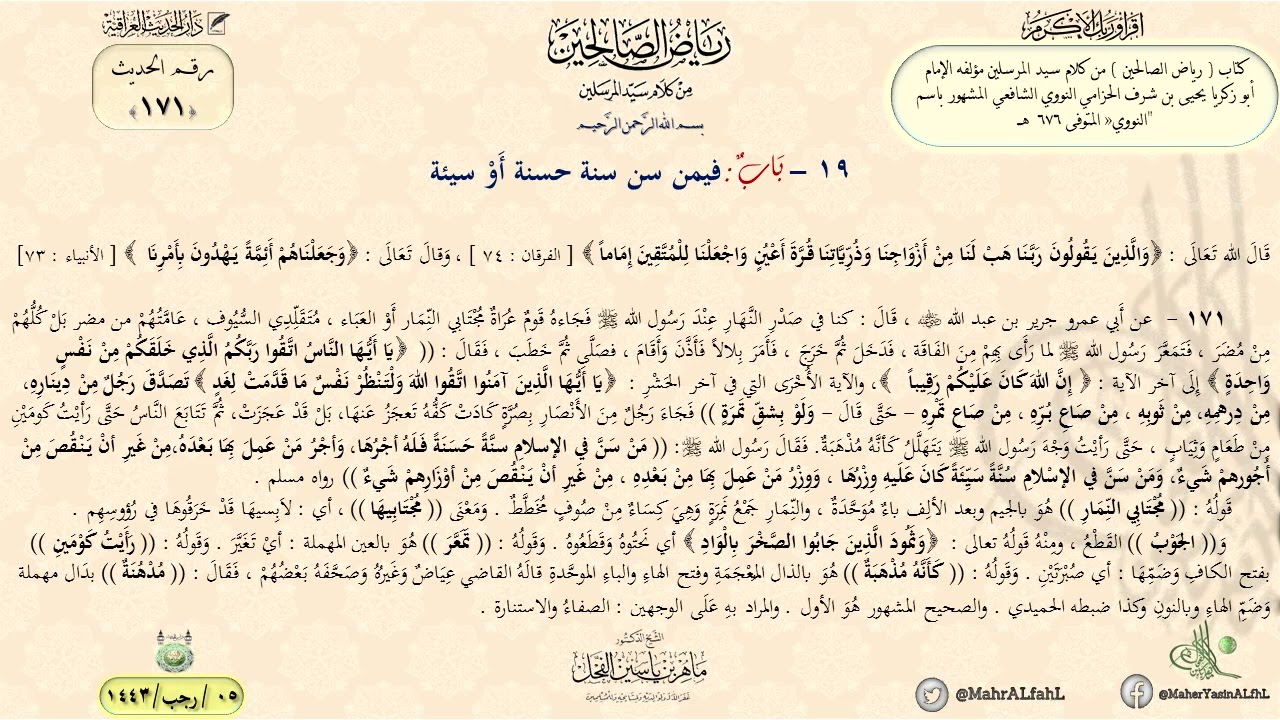 اقرأ وربك الأكرم
كتاب ( رياض الصالحين ) من كلام سيد المرسلين مؤلفه الإمام
أبو زكريا يحيى بن شرف الحزامي النووي الشافعي المشهور باسم
"النووي« المتوفى ٦٧٦ هـ
رياض الصالحين
من كلام سيد المرسلين
بسم الله الرحمن الرحيم
دار الحديث العراقية
رقم الحديث
﴿١٧١﴾
١٩ – بَابٌ : فيمن سن سنة حسنة أَوْ سيئة
قَالَ الله تَعَالَى : ﴿وَالَّذِينَ يَقُولُونَ رَبَّنَا هَبْ لَنَا مِنْ أَزْوَاجِنَا وَذُرِّيَّاتِنَا قُرَّةَ أَعْيُنٍ وَاجْعَلْنَا لِلْمُتَّقِينَ إِمَاماً ﴾ [ الفرقان : ٧٤ ] ، وَقالَ تَعَالَى : ﴿وَجَعَلْنَاهُمْ أَئِمَّةً يَهْدُونَ بِأَمْرِنَا ﴾ [ الأنبياء : ٧٣]
١٧١ – عن أَبي عمرو جرير بن عبد الله ، قَالَ : كنا في صَدْرِ النَّهَارِ عِنْدَ رَسُول الله ﷺ فَجَاءهُ قَومٌ عُرَاةٌ مُجْتَابي النِّمَار أَوْ العَبَاء ، مُتَقَلِّدِي السُّيُوف ، عَامَّتُهُمْ من مضر بَلْ كُلُّهُمْ
مِنْ مُضَرَ ، فَتَمَعَّرَ رَسُول الله ﷺ لما رَأَى بِهِمْ مِنَ الفَاقَة ، فَدَخَلَ ثُمَّ خَرَجَ ، فَأَمَرَ بِلالاً فَأَذَّنَ وَأَقَامَ ، فصَلَّى ثُمَّ خَطَبَ ، فَقَالَ : (( ﴿يَا أَيُّهَا النَّاسُ اتَّقُوا رَبَّكُمُ الَّذِي خَلَقَكُمْ مِنْ نَفْسٍ
وَاحِدَةٍ ﴾ إِلَى آخر الآية : ﴿ إِنَّ اللهَ كَانَ عَلَيْكُمْ رَقِيباً ﴾، والآية الأُخْرَى التي في آخر الحَشْرِ : ﴿يَا أَيُّهَا الَّذِينَ آمَنُوا اتَّقُوا اللهَ وَلْتَنْظُرْ نَفْسٌ مَا قَدَّمَتْ لِغَدٍ ﴾ تَصَدَّقَ رَجُلٌ مِنْ دِينَارِهِ،
مِنْ دِرهَمِهِ، مِنْ ثَوبِهِ ، مِنْ صَاعِ بُرِّهِ ، مِنْ صَاعِ تَمْرِهِ – حَتَّى قَالَ – وَلَوْ بِشقِّ تَمرَةٍ )) فَجَاءَ رَجُلٌ مِنَ الأَنْصَارِ بِصُرَّةٍ كَادَتْ كَفُّهُ تَعجَزُ عَنهَا، بَلْ قَدْ عَجَزَتْ، ثُمَّ تَتَابَعَ النَّاسُ حَتَّى رَأيْتُ كَومَيْنِ
مِنْ طَعَامٍ وَثِيَابٍ ، حَتَّى رَأيْتُ وَجْهَ رَسُولِ الله ﷺ يَتَهَلَّلُ كَأنَّهُ مُذْهَبَةٌ. فَقَالَ رسول الله ﷺ: (( مَنْ سَنَّ في الإسلامِ سنَّةً حَسَنَةً فَلَهُ أجْرُهَا، وَأجْرُ مَنْ عَمِلَ بِهَا بَعْدَهُ،مِنْ غَيرِ أنْ يَنْقُصَ مِنْ
أُجُورهمْ شَيءٌ، وَمَنْ سَنَّ في الإسْلامِ سُنَّةً سَيِّئَةً كَانَ عَلَيهِ وِزْرُهَا ، وَوِزْرُ مَنْ عَمِلَ بِهَا مِنْ بَعْدِهِ ، مِنْ غَيرِ أنْ يَنْقُصَ مِنْ أوْزَارِهِمْ شَيءٌ )) رواه مسلم .
قَولُهُ : (( مُجْتَابي النِّمَارِ )) هُوَ بالجيم وبعد الألِف باءٌ مُوَحَّدَةٌ ، والنِّمَار جَمْعُ نَمِرَةٍ وَهِيَ كِسَاءٌ مِنْ صُوفٍ مُخَطَّطٌ . وَمَعْنَى (( مُجْتَابِيهَا )) ، أي : لاَبِسِيهَا قَدْ خَرَقُوهَا في رُؤوسِهِم .
وَ(( الجَوْبُ )) القَطْعُ ، ومِنْهُ قَولُهُ تعالى : ﴿وَثَمُودَ الَّذِينَ جَابُوا الصَّخْرَ بِالْوَادِ ﴾ أي نَحَتُوهُ وَقَطَعُوهُ . وَقَولُهُ : (( تَمَعَّرَ )) هُوَ بالعين المهملة : أيْ تَغَيَّرَ . وَقَولُهُ : (( رَأَيْتُ كَوْمَينِ ))
بفتح الكافِ وَضَمِّهَا : أي صُبْرَتَيْنِ . وَقَولُهُ : (( كَأَنَّهُ مُذْهَبَةٌ )) هُوَ بالذال المُعْجَمَةِ وفتح الهاءِ والباءِ الموحَّدةِ قالَهُ القاضي عِيَاضٌ وَغَيرُهُ وَصَحَّفَهُ بَعْضُهُمْ ، فَقَالَ : (( مُدْهُنَةٌ )) بدَال مهملة
وَضَمِّ الهاءِ وبالنونِ وكذا ضبطه الحميدي . والصحيح المشهور هُوَ الأول . والمراد بهِ عَلَى الوجهين : الصفاءُ والاستنارة .
الشيخ الدكتور
ماهر بن ياسين الفحل
٠٥ /رجب/١٤٤٣
@MahrALfahL
@MaherYasinALfhL